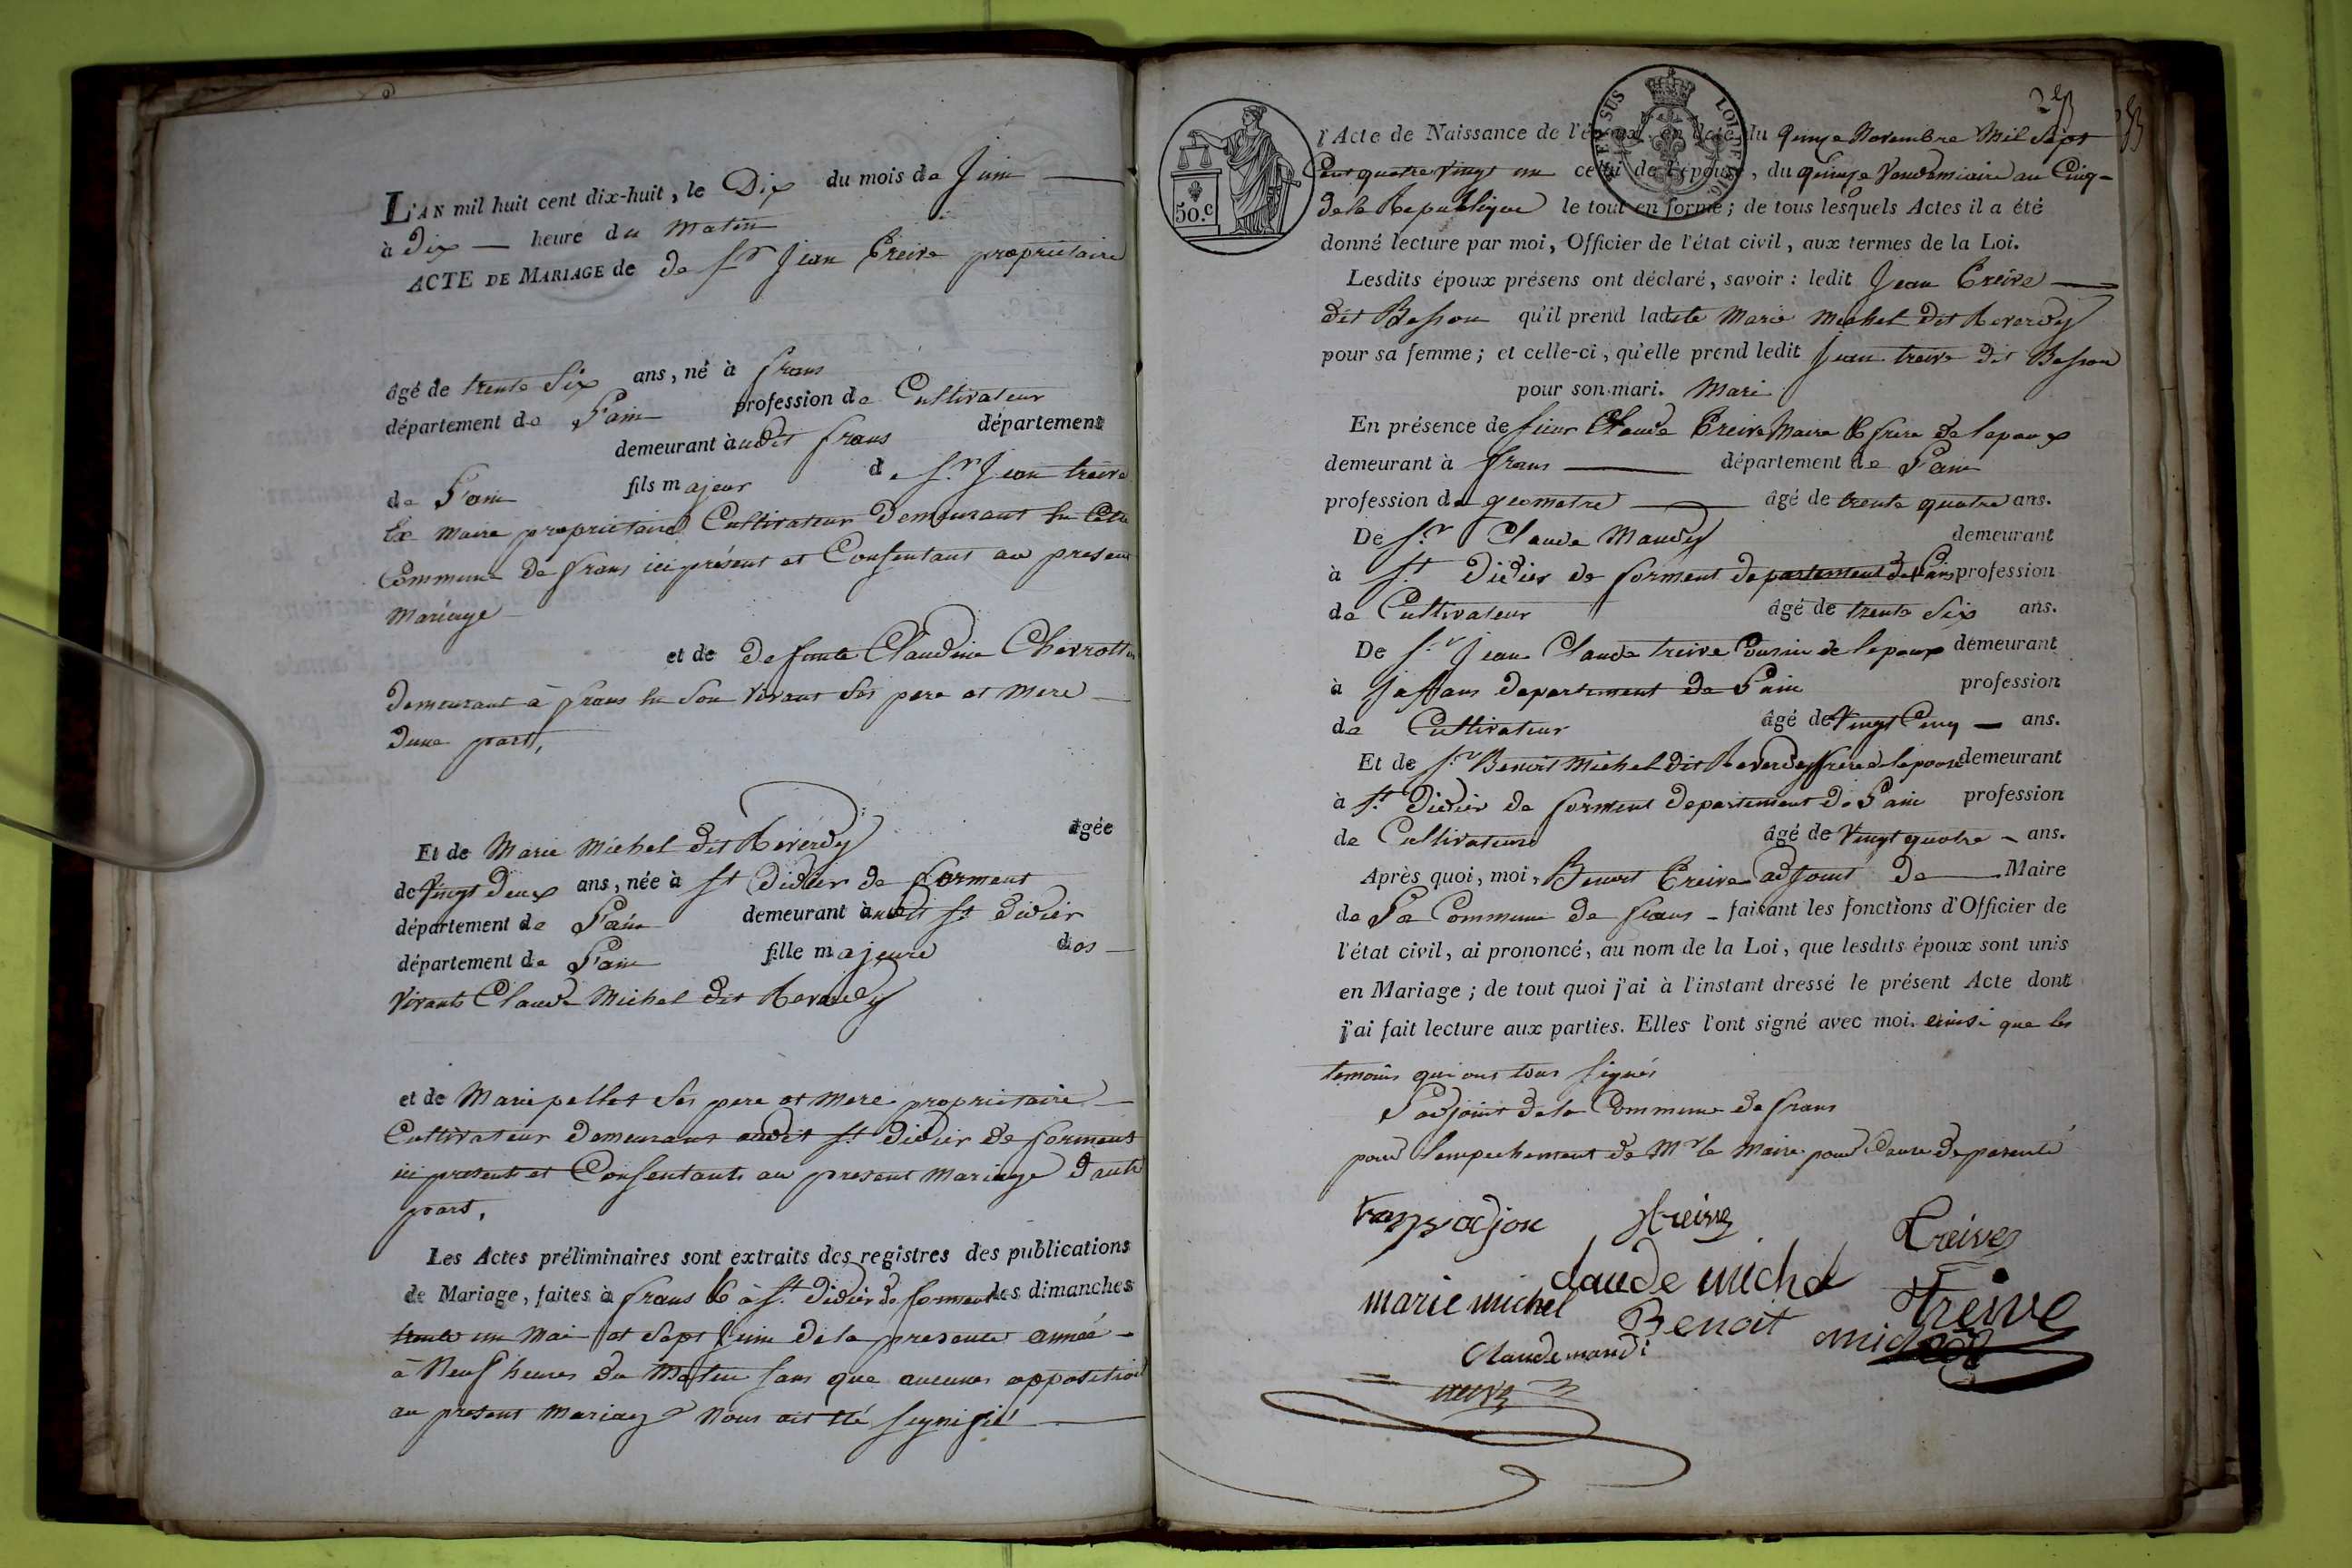 L'AN mil huit cent dix-huit, le Dix du mois de Juin
à Dix heure du Matin
ACTE DE MARIAGE de de Sr Jean Treive proprietaire
âgé de trente Six ans, né à frans
département de L'ain profession de Cultivateur
demeurant àudit frans département
de L'ain fils majeur de Sr. Jean treive
Ex Maire proprietaire Cultivateur Demeurant En Cette
Commune de frans ici présent et Consentant au present
Mariage
et de Defunte Claudine Chevrottin
Demeurant à frans En Son Vivant Ses pere et Mere
Dune part,
Et de Marie Michel dit Reverdy agée
de Vingt Deux ans, née à St Didier de forment
département de L'ain demeurant àudit St Didier
département de L'ain fille majeure des
Vivants Claude Michel dit Reverdy
et de Marie pellet Ses pere et Mere proprietaire
Cultivateur Demeurant audit St. Didier de formens
ici presents et Consentants au present Mariage Dautre
part,
Les Actes préliminaires sont extraits des registres des publications
de Mariage, faites à frans & à St. Didier de formens les dimanches
trente un Mai et Sept Juin De la presente année
à Neuf heures Du Matin Sans que aucunes opposition
au present Mariage Nous ait été Signifié
l'Acte de Naissance de l'époux, en date du quinze Novembre Mil Sept
Cent quatre Vingt un celui de l'épouse, du quinze Vendemiaire an Cinq
de la Republique le tout en forme; de tous lesquels Actes il a été
donné lecture par moi, Officier de l'état civil, aux termes de la Loi.
Lesdits époux présens ont déclaré, savoir: ledit Jean Treive
dit Besson qu'il prend ladite Marie Michel dit Reverdy
pour sa femme; et celle-ci, qu'elle prend ledit Jean treive dit Besson
pour son mari. Mari
En présence de Sieur Claude Treive Maire & frere de lepoux
demeurant à frans département de L'ain
profession de geometre âgé de trente quatre ans.
De Sr. Claude Maudy demeurant
à St. Didier de forment departement de L'ain profession
de Cultivateur âgé de trente Six ans.
De Sr. Jean Claude treive Cousin de lepoux demeurant
à Jassans departement de L'ain profession
de Cultivateur âgé de Vingt Cinq ans.
Et de Sr. Benoit Michel dit Reverdy frere de lepouse demeurant
à St. Didier de forment departement de L'ain profession
de Cultivateur âgé de Vingt quatre ans.
Après quoi, moi, Benoit Treive adjoint de Maire
de La Commune de frans faisant les fonctions d'Officier de
l'état civil, ai prononcé, au nom de la Loi, que lesdits époux sont unis
en Mariage; de tout quoi j'ai à l'instant dressé le présent Acte dont
j'ai fait lecture aux parties. Elles l'ont signé avec moi. einsi que les
temoins qui ont tous Signés
L'adjoint de la Commune de frans
pour l'empechement de Mr le Maire pour Cause de parenté
adjoin Treive Treive
marie michel claude michel Treive
Benoit michel
Claude maudi
50.c
LOI DE